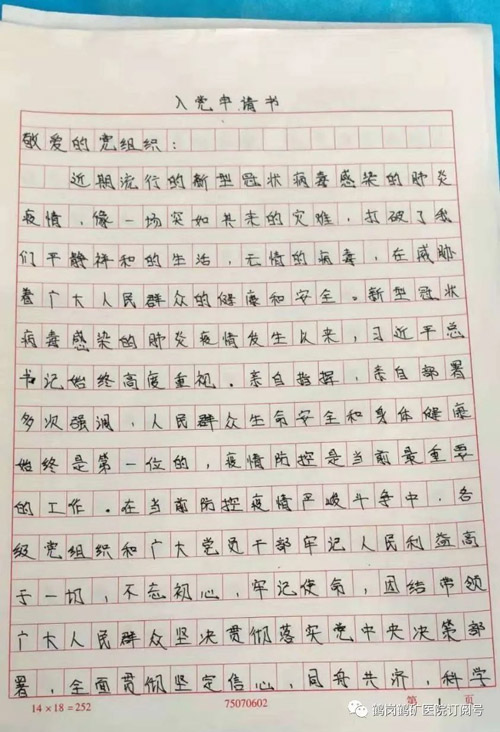 入党申请书
敬爱的党组织：
近期流行的新型冠状病毒感染的肺炎
疫情，像一场突如其来的灾难，打破了我
们平静祥和的生活，无情的病毒，在威胁
着广大人民群众的健康和安全。新型冠状
病毒感染的肺炎疫情发生以来，习近平总
书记始终高度重视，亲自指挥，亲自部署
多次强调，人民群众生命安全和身体健康
始终是第一位的，疫情防控是当前最重要
的工作。在当前防控疫情严峻斗争中，各
级党组织和广大党员干部牢记人民利益高
于一切，不忘初心，牢记使命，团结带领
广大人民群众坚决贯彻落实党中央决策部
署，全面贯彻坚定信心，同舟共济，科学
14×18=252 75070602 第 1 页
鹤岗鹤矿医院订阅号